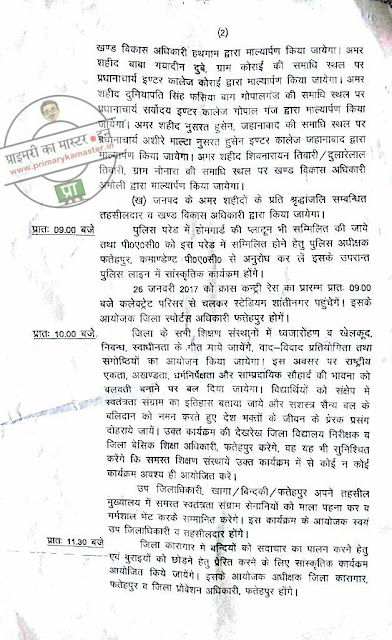 (2)
खण्ड विकास अधिकारी हथगाम द्वारा माल्यार्पण किया जायेगा। अमर
शहीद बाबा गयादीन दुबे, ग्राम कोराई की समाधि स्थल पर
प्रधानाचार्य इण्टर कालेज कोराई द्वारा माल्यार्पण किया जायेगा। अमर
शहीद दुनियापति सिंह फसिया बाग गोपालगंज की समाधि स्थल पर
प्रधानाचार्य सर्वोदय इण्टर कालेज गोपाल गंज द्वारा माल्यार्पण किया
जायेगा। अमर शहीद नुसरत हुसेन, जहानाबाद की समाधि स्थल पर
प्रधानाचार्य अशीरे माल्टा नुसरत हुसेन इण्टर कालेज जहानाबाद द्वारा
माल्यार्पण किया जायेगा। अमर शहीद शिवनारायन तिवारी/दुलारेलाल
तिवारी, ग्राम नोनारा की समाधि स्थल पर खण्ड विकास अधिकारी
अमौली द्वारा माल्यार्पण किया जायेगा।
(ख) जनपद के अमर शहीदों के प्रति श्रृद्धांजलि सम्बन्धित
तहसीलदार व खण्ड विकास अधिकारी द्वारा किया जायेगा।
प्रातः 09.00 बजे
पुलिस परेड में होमगार्ड की प्लाटून भी सम्मिलित की जाये
तथा पी०ए०सी० को इस परेड में सम्मिलित होने हेतु पुलिस अधीक्षक
फतेहपुर, कमाण्डेण्ट पी०ए०सी० से अनुरोध कर लें इसके उपरान्त
पुलिस लाईन में सांस्कृतिक कार्यक्रम होंगे।
26 जनवरी 2017 को क्रास कन्ट्री रेस का प्रारम्भ प्रातः 09.00
बजे कलेक्ट्रेट परिसर से चलकर स्टेडियम शांतीनगर पहुंचेगें। इसके
आयोजक जिला स्पोर्टस अधिकारी फतेहपुर होगें।
प्रातः 10.00 बजे
जिला के सभी शिक्षण संस्थानो में ध्वजारोहण व खेलकूद,
निबन्ध, स्वाधीनता के गीत गाये जायेंगे, वाद-विवाद प्रतियोगिता तथा
संगोष्ठियों का आयोजन किया जायेगा। इस अवसर पर राष्ट्रीय
एकता, अखण्डता, धर्मनिर्पेक्षता और साम्प्रदायिक सौहार्द की भावना को
बलवती बनाने पर बल दिया जायेगा। विद्यार्थियों को संक्षेप में
स्वतंत्रता संग्राम का इतिहास बताया जाये और सशस्त्र सैन्य बल के
बलिदान को नमन करते हुए देश भक्तों के जीवन के प्रेरक प्रसंग
दोहराये जायें। उक्त कार्यक्रम की देखरेख जिला विद्यालय निरीक्षक व
जिला बेसिक शिक्षा अधिकारी, फतेहपुर करेंगे, वह यह भी सुनिश्चित
करेंगे कि समस्त शिक्षण संस्थायें उक्त कार्यक्रम में से कोई न कोई
कार्यक्रम अवश्य ही आयोजित करें।
उप जिलाधिकारी, खागा/बिन्दकी/फतेहपुर अपने तहसील
मुख्यालय में समस्त स्वतंत्रता संग्राम सेनानियों को माला पहना कर व
गर्मशाल भेंट करके सम्मानित करेगें। इस कार्यक्रम के आयोजक स्वयं
उप जिलाधिकारी व तहसीलदार होंगे।
प्रातः 11.30 बजे
जिला कारागार में बन्दियों को सदाचार का पालन करने हेतु
एवं बुराइयों को छोड़ने हेतु प्रेरित करने के लिए सांस्कृतिक कार्यक्रम
आयोजित किये जायेंगे। इसके आयोजक अधीक्षक जिला कारागार,
फतेहपुर व जिला प्रोबेशन अधिकारी, फतेहपुर होंगे।
प्राइमरी का मास्टर
www.primarykamaster.in
प्रा